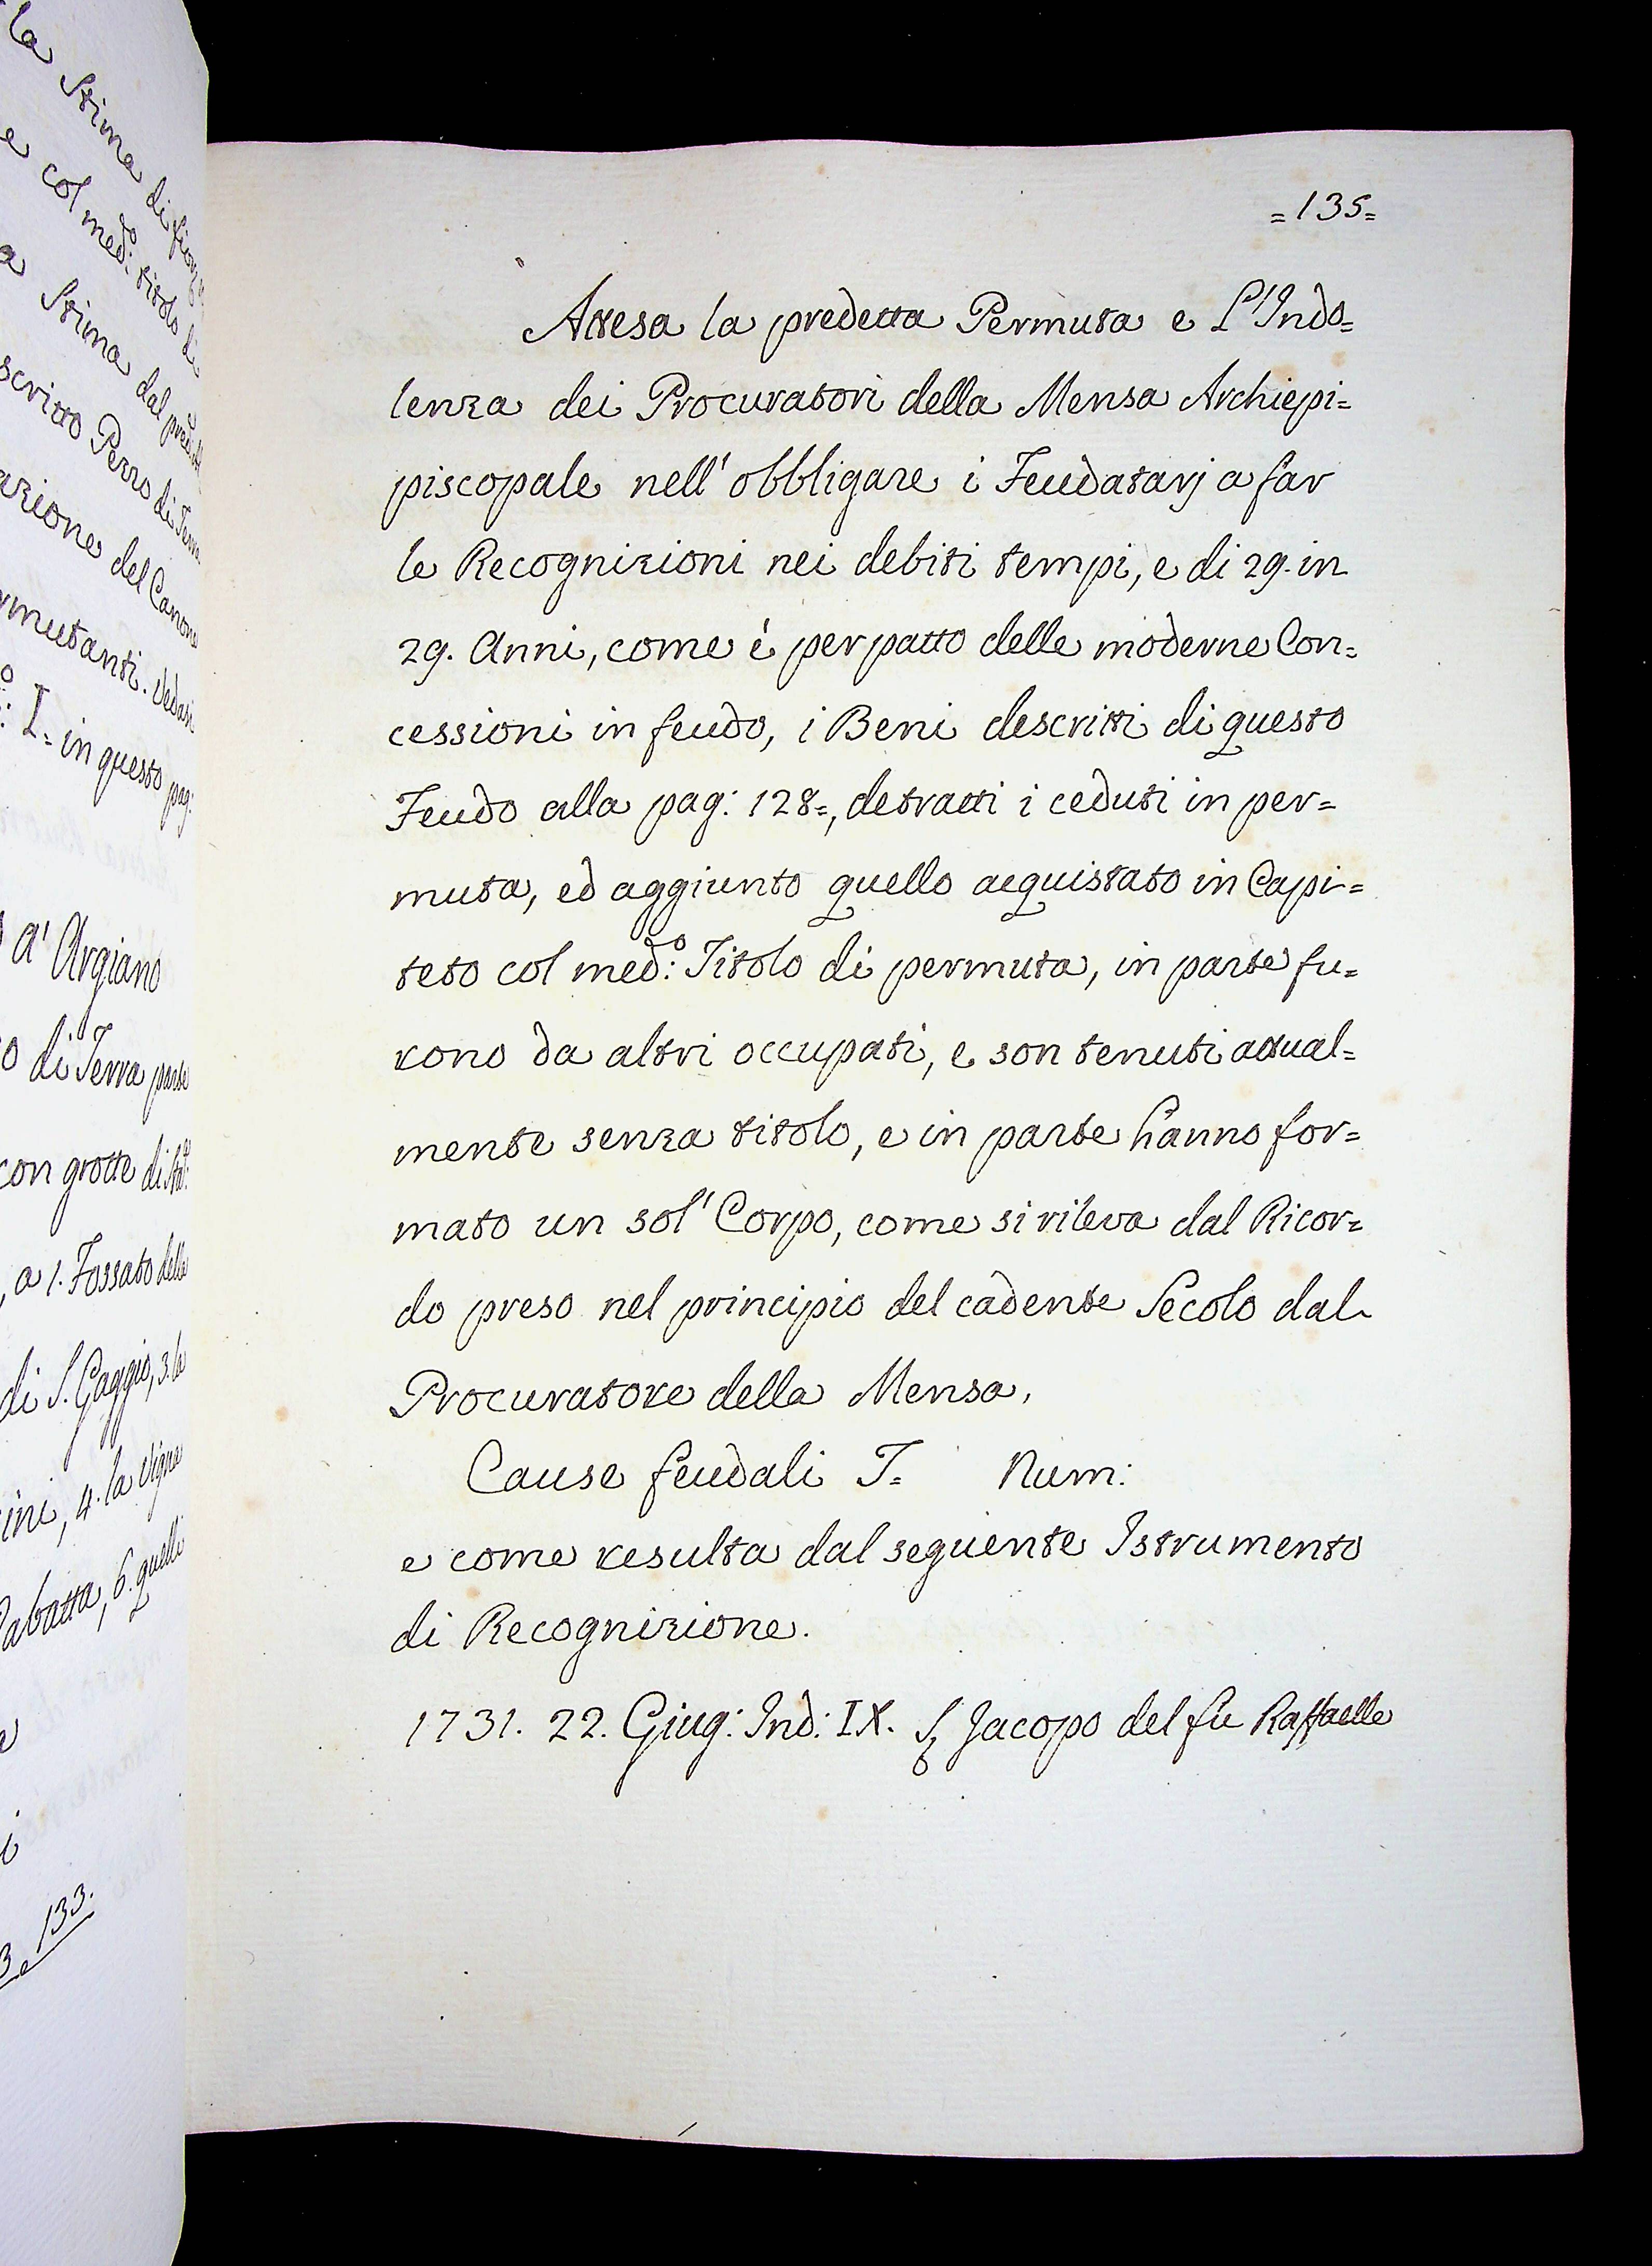 la Stima di
e col med:º titolo di
a Stima dal
scritto Pezzo di
azione del Canone
rmutanti. Vedasi
I= in questo pag:
a' Argiano
o di Terra parte
con grotte di
, a 1. Fossato delle
di S. Gaggio, 3. la
ini, 4. la Vigne
Rabatta, 6. quelli
3 e 133.
=135=
Attesa la predetta Permuta e L'Indo=
lenza dei Procuratori della Mensa Archiepi=
piscopale nell' obbligare i Feudatarj a far
le Recognizioni nei debiti tempi, e di 29. in
29. Anni, come é per patto delle moderne Con=
cessioni in feudo, i Beni descritti di questo
Feudo alla pag: 128=, detratti i ceduti in per=
muta, ed aggiunto quello acquistato in Capi=
teto col med:º Titolo di permuta, in parte fu=
rono da altri occupati, e son tenuti attual=
mente senza titolo, e in parte hanno for=
mato un sol' Corpo, come si rileva dal Ricor=
do preso nel principio del cadente Secolo dal
Procuratore della Mensa,
Cause feudali T= Num:
e come resulta dal seguente Istrumento
di Recognizione.
1731. 22. Giug: Ind: IX. S Jacopo del fu Raffaelle